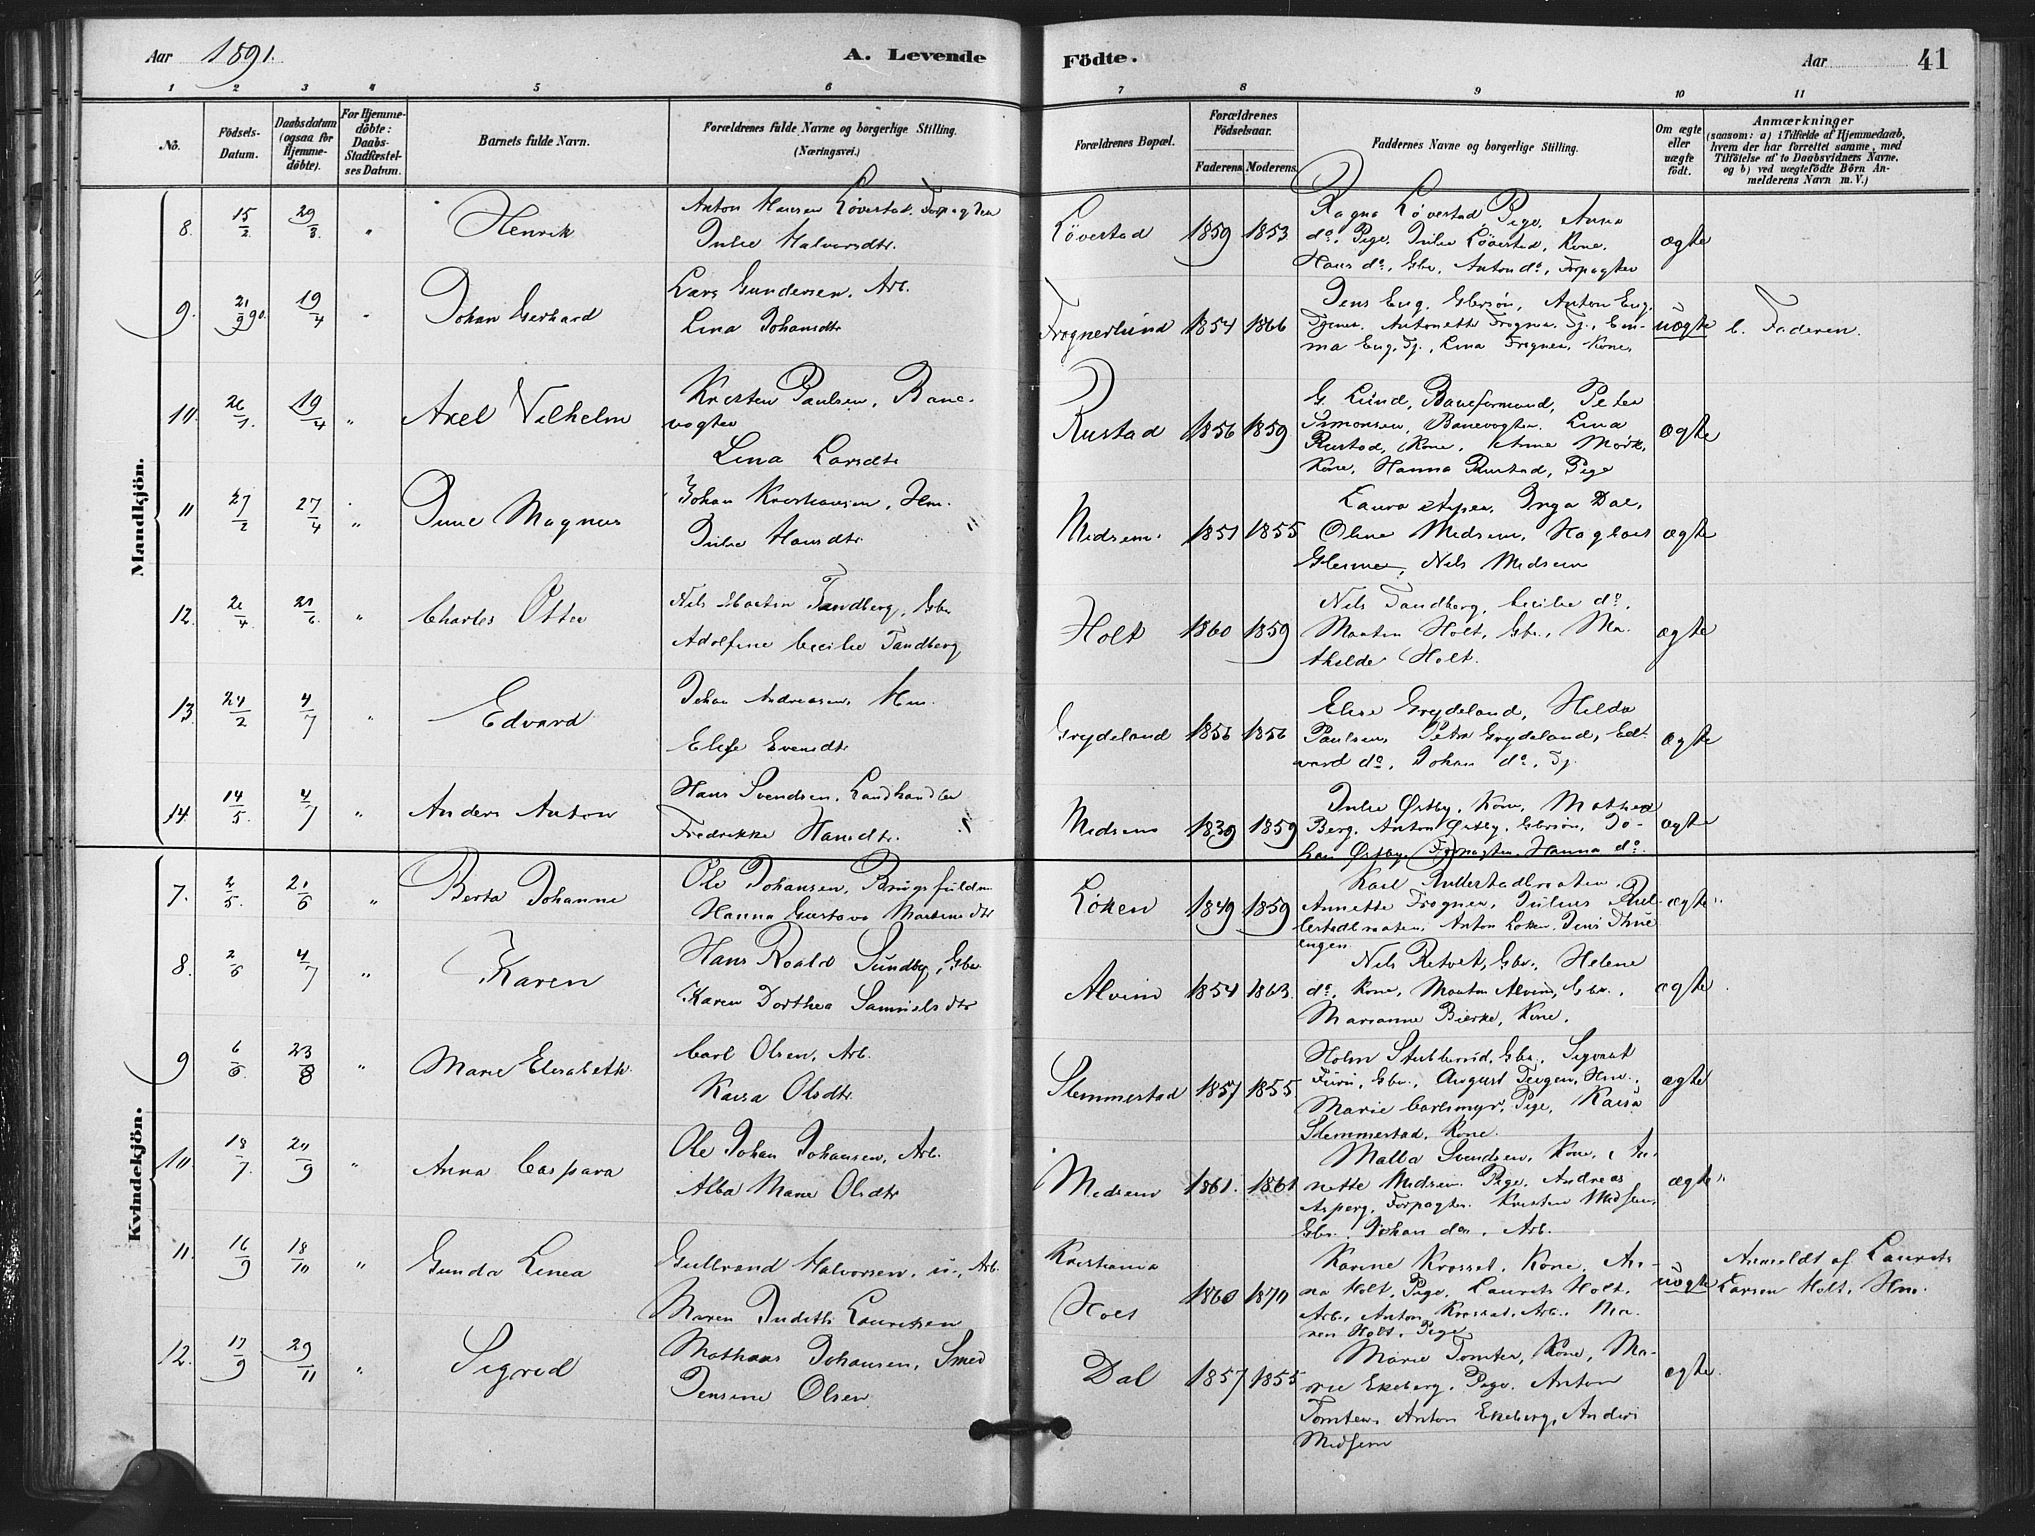 Aar 1891. A. Levende Födte. Aar 41
1 2 3 4 5 6 7 8 9 10 11
No.
Födsels-Datum.
Daabsdatum (ogsaa for Hjemme-döbte).
For Hjemme-döbte: Daabs-Stadfæstel-ses Datum.
Barnets fulde Navn.
Forældrenes fulde Navne og borgerlige Stilling.
(Næringsvei.)
Forældrenes Bopæl.
Forældrenes Födselsaar.
Faderens Moderens
Faddernes Navne og borgerlige Stilling.
Om ægte eller uægte födt.
Anmærkninger
(saasom: a) i Tilfælde af Hjemmedaab,
hvem der har forrettet samme, med
Tilföielse af to Daabsvidners Navne.
og b) ved uægtefödte Börn An-
melderens Navn m. V.)
Mandkjön.
8. 15/2 29/3 " Henrik
Anton Hansen Løvestad. Forpagter
Julie Halvorsdtr.
Løvestad 1859 1853
Ragna Løvestad Pige, Anna
do, Pige, Julie Løvestad, Kone,
Hans do, Gbr, Anton do, Forpagter
ægte
9. 21/9 90. 19/4 " Johan Gerhard
Lars Gundersen, Arb.
Lina Johansdtr
Frognerlund 1854 1866
Jens Eng, Gbrsøn, Anton Eng,
Tjener, Antonette Frogner Tj., Em-
ma Eng, Tj., Lina Frogner, Kone,
uægte b. Faderen.
10. 26/1. 19/4 " Axel Vilhelm
Kristen Paulsen, Bane-
vogter
Lina Larsdtr
Rustad 1856 1859
G. Lund, Baneformand, Peter
Simonsen, Banevogter. Lina
Rustad, Kone, Anna Mørk,
Kone, Hanna Rustad, Pige
ægte
11 27/2 27/4 " Magnus
Johan Kristiansen, Hm.
Julie Hansdtr.
Midsem. 1851 1855
Laura Asper, Inga Dal,
Oline Midsem,
Nils Midsem
ægte
12. 4. 21/6 " Charles Otto
Nils Martin Tandberg, Gbr
Adolfine Cecilie Tandberg
Holt 1860 1859
Nils Tandberg, Cecilie do,
Martin Holt, Gbr., Ma-
thilde Holt.
ægte
13. 24/2 4/7 " Edvard
Johan Andreasen, Hm.
Elise Evensdtr
Grydeland 1856 1856
Elise Grydeland, Hilda
Paulsen, Petra Grydeland, Ed-
vard do, Johan do, Tj.
ægte
14. 14/5. 4/7 " Anders Anton
Hans Svendsen, Landhandler
Fredrikke Hansdtr.
Midsem 1839 1859
Julie Østby, Kone, Mathea
Berg, Anton Østby, Gbrsøn, Jo-
han Østby, Forpagter, Hanna do.
ægte
Kvindekjön.
7. 2/5. 21/6 " Berta Johanne
Ole Johansen, Brugsfuldm
Hanna Gustava Martinsdtr
Løken 1849 1859
Karl Rullestadbraaten,
Annette Frogner, Julius Rul-
lestadbraaten, Anton Løken, Jens Thue
engen
ægte
8. 2/6 4/7 " Karen
Hans Roald Sundby, Gbr
Karen Dorthea Samuelsdtr
Alvim 1854 1863.
Nils Retvet, Gbr., Helene
do, Kone, Martin Alvim, Gbr.,
Marianne Bierke, Kone.
ægte
9 6/6. 23/8 " Marie Elisabeth
Carl Olsen, Arb.
Kaisa Olsdtr.
Slemmestad 1857 1855
Holm Stubberud, Gbr., Sigvart
Furu, Gbr., August Teigen, Hm.,
Marie Carlsmyr, Pige, Kaisa
Slemmestad, Kone.
ægte
10. 18/7. 9 " Anna Caspara
Ole Johan Johansen, Arb.
Alba Marie Olsdtr
Midsem 1861. 1861
Malba Svendsen, Kone,
nette Midsem Pige, Andreas
Asperg, Forpagter. Kristian Midsem,
Gbr. Johan do, Arb.
ægte
11. 16/9 18/10 " Gunda Linea
Gulbrand Halvorsen, u., Arb.
Maren Judith Lauritsen
Kristiania
Holt 1860 1870
Karine Krossel, Kone, An-
na Holt, Pige, Laurits Holt,
Arb., Anton Krossel, Arb., Ma-
ren Holt, Pige
uægte
Anmeldt af Laurits
Larsen Holt, Hm.
12. 17/9 29/11 " Sigrid
Mathias Johansen, Smed
Jensine Olsen
Dal 1857 1855
Marie Tomter, Kone, Ma-
rie Ekeberg, Pige, Anton
Tomter, Anton Ekeberg, Anders
Midsem
ægte